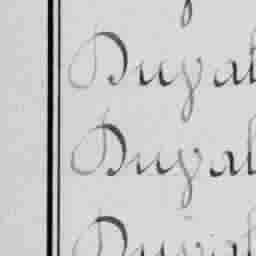 Duyal
Duyal
Duyal